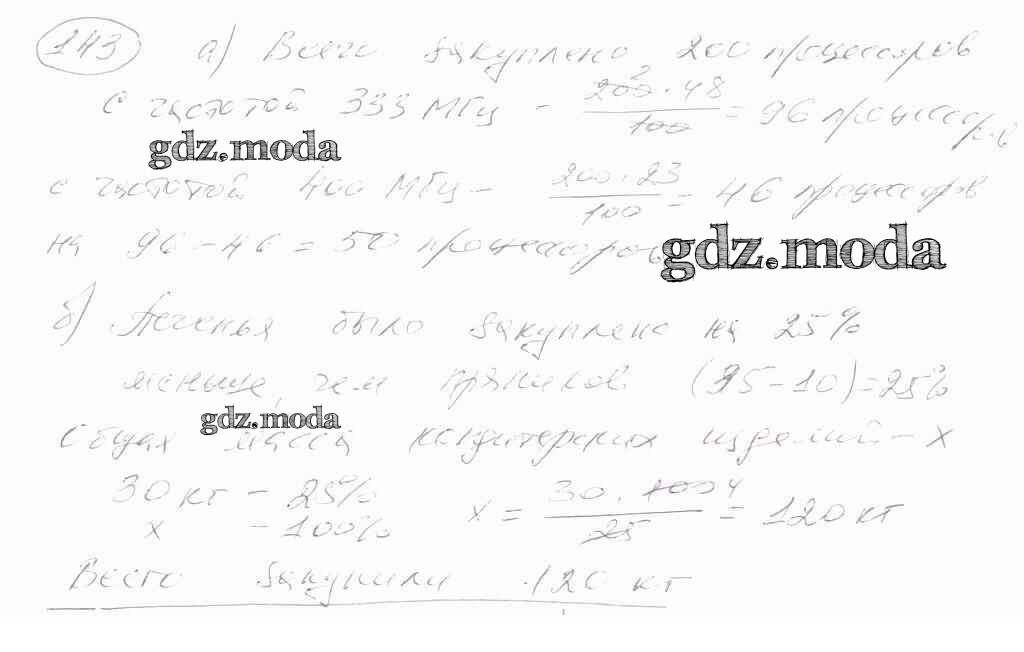 143 а) Всего закуплено 200 процессоров
с частотой 333 МГц - 200 · 48 / 100 = 96 процессоров
gdz.moda
с частотой 400 МГц - 200 · 23 / 100 = 46 процессоров
на 96 - 46 = 50 процессоров
gdz.moda
б) Печенья было закуплено на 25%
меньше, чем пряников (35-10)=25%
gdz.moda
Общая масса кондитерских изделий - x
30 кг - 25%
x - 100%
x = 30 · 100 4 / 25 = 120 кг
Всего закупили 120 кг